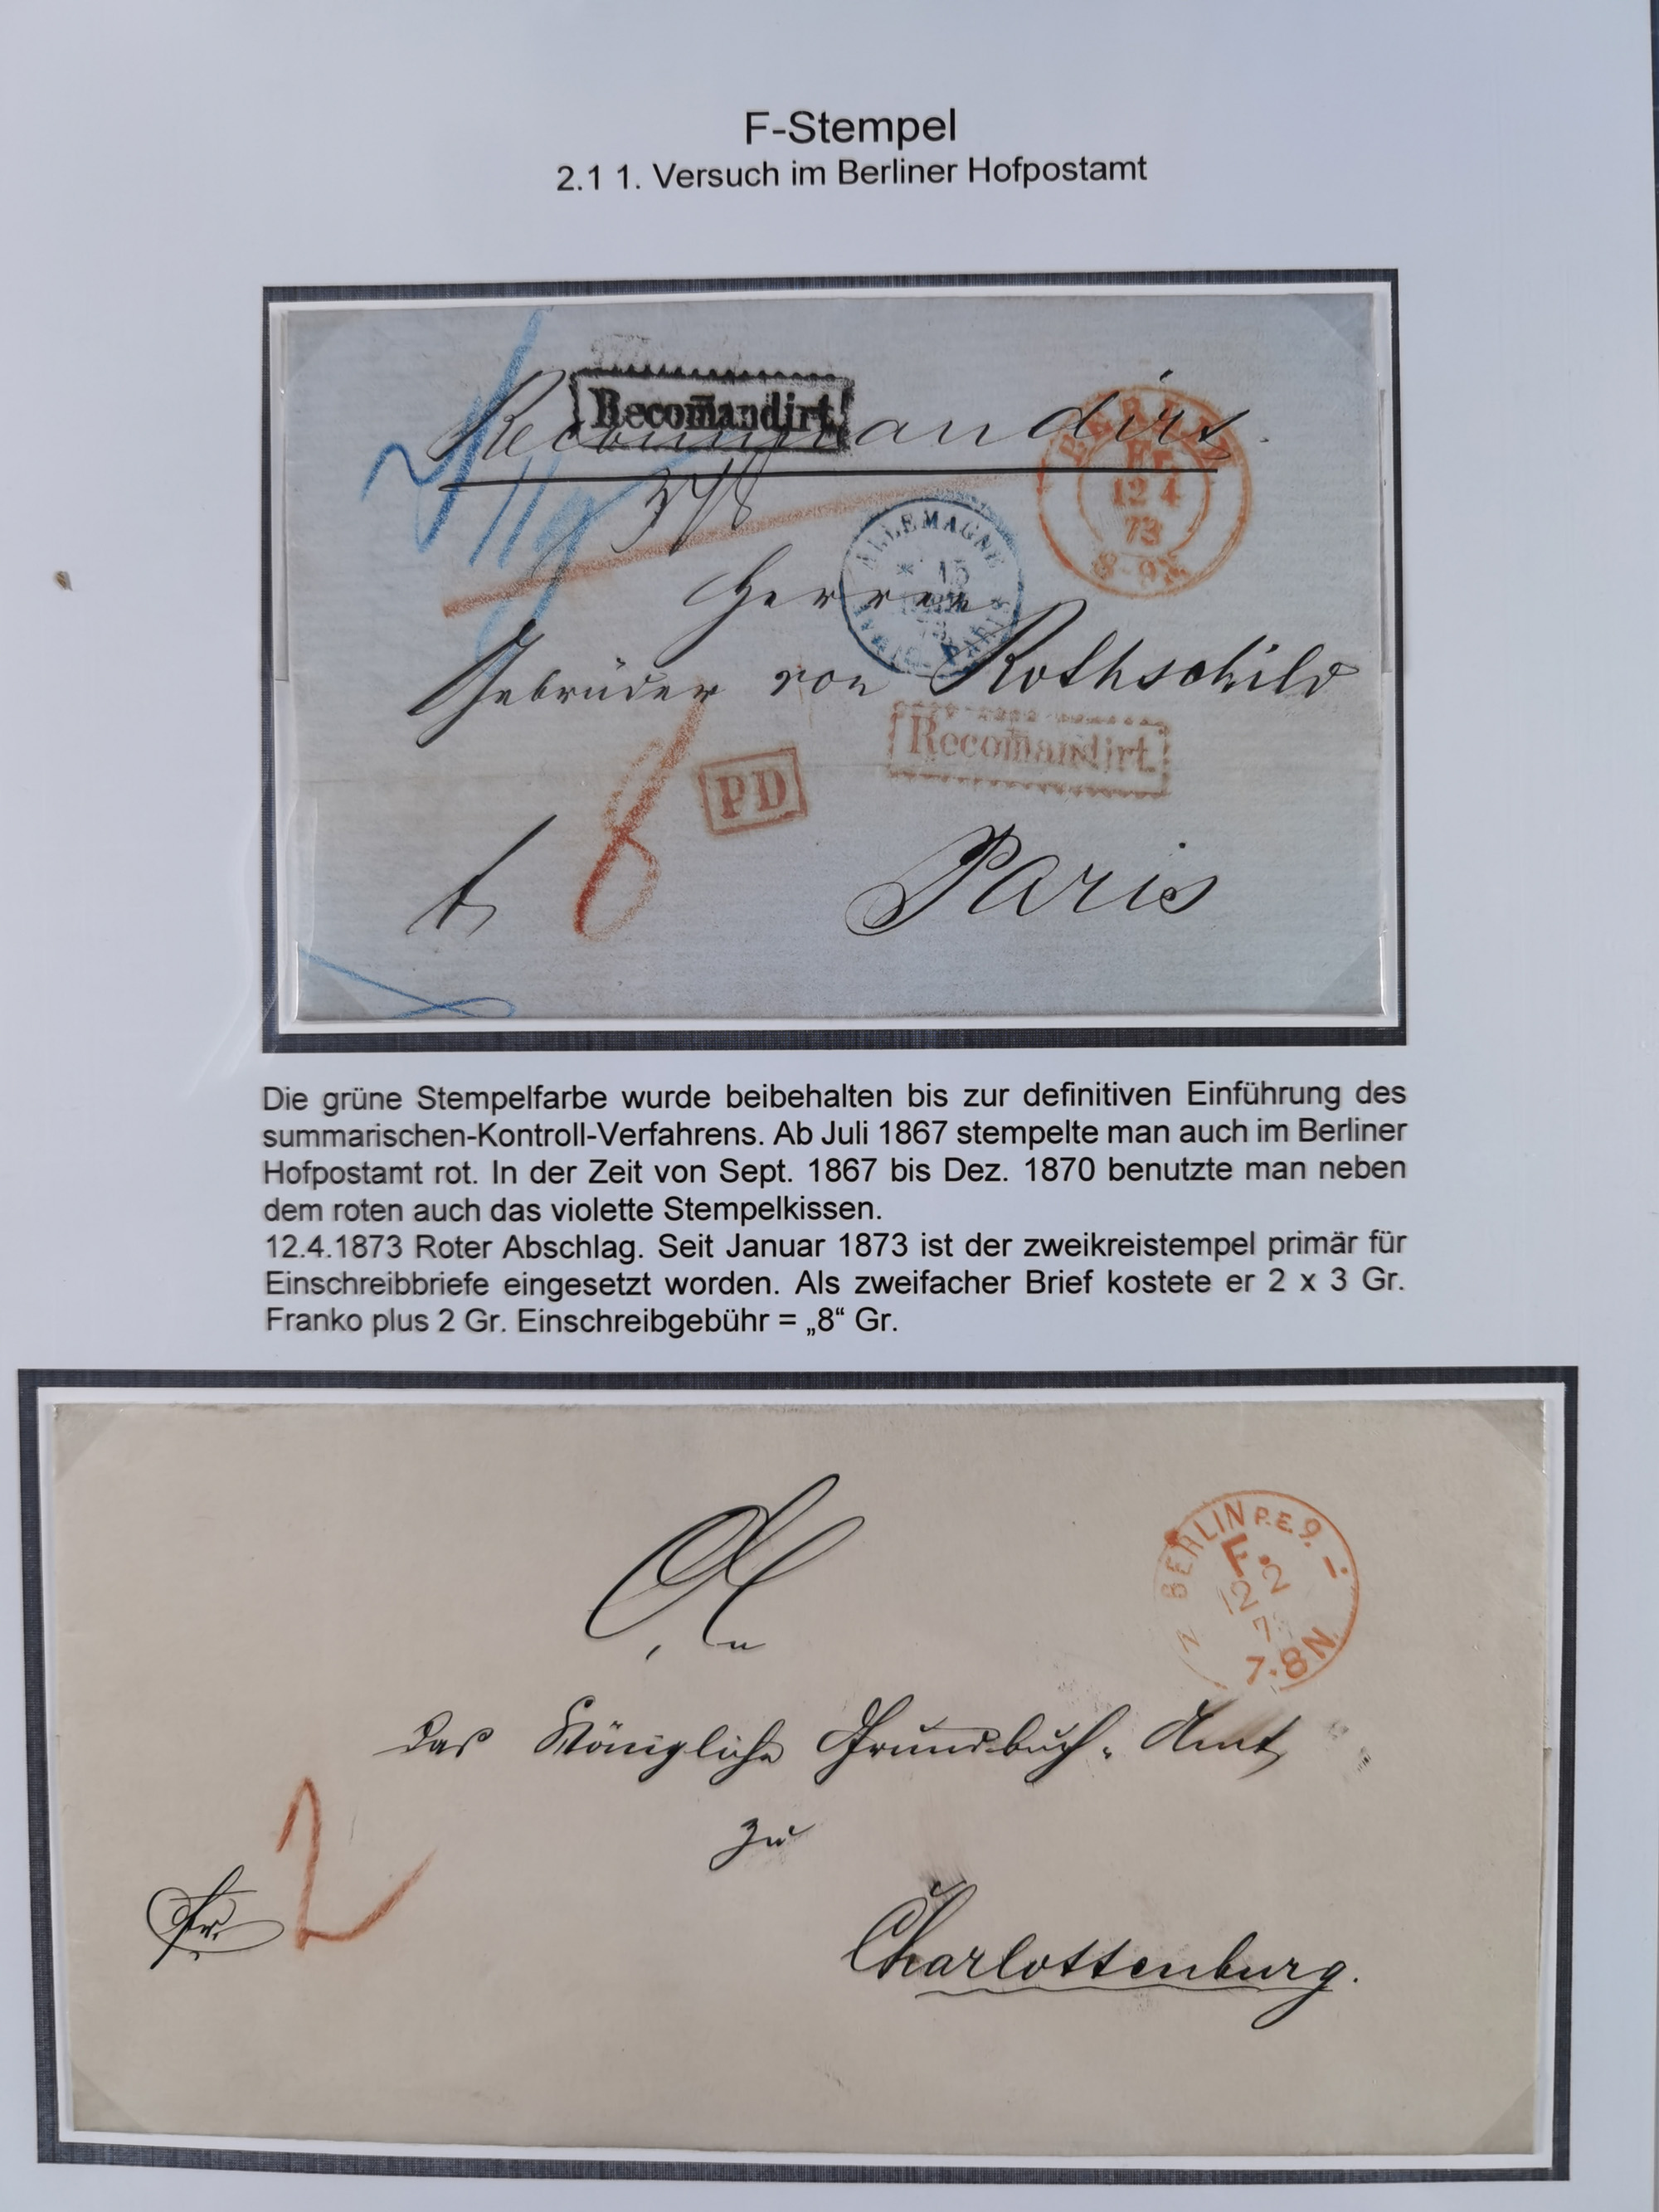 F-Stempel
2.1 1. Versuch im Berliner Hofpostamt
Recom̄andirt
Recommandirt.
BERLIN
Fr.
12 4
73
8-9
378
ALLEMAGNE
15
PARIS
Herren
Gebrüder von Rothschild
Recom̄andirt.
PD
8
fr
Paris
Die grüne Stempelfarbe wurde beibehalten bis zur definitiven Einführung des
summarischen-Kontroll-Verfahrens. Ab Juli 1867 stempelte man auch im Berliner
Hofpostamt rot. In der Zeit von Sept. 1867 bis Dez. 1870 benutzte man neben
dem roten auch das violette Stempelkissen.
12.4.1873 Roter Abschlag. Seit Januar 1873 ist der zweikreistempel primär für
Einschreibbriefe eingesetzt worden. Als zweifacher Brief kostete er 2 x 3 Gr.
Franko plus 2 Gr. Einschreibgebühr = „8“ Gr.
BERLIN P.E.9.
F. 2
12 2
7-8N.
An
das Königliche Grundbuch-Amt
zu
Fr. 2
Charlottenburg.